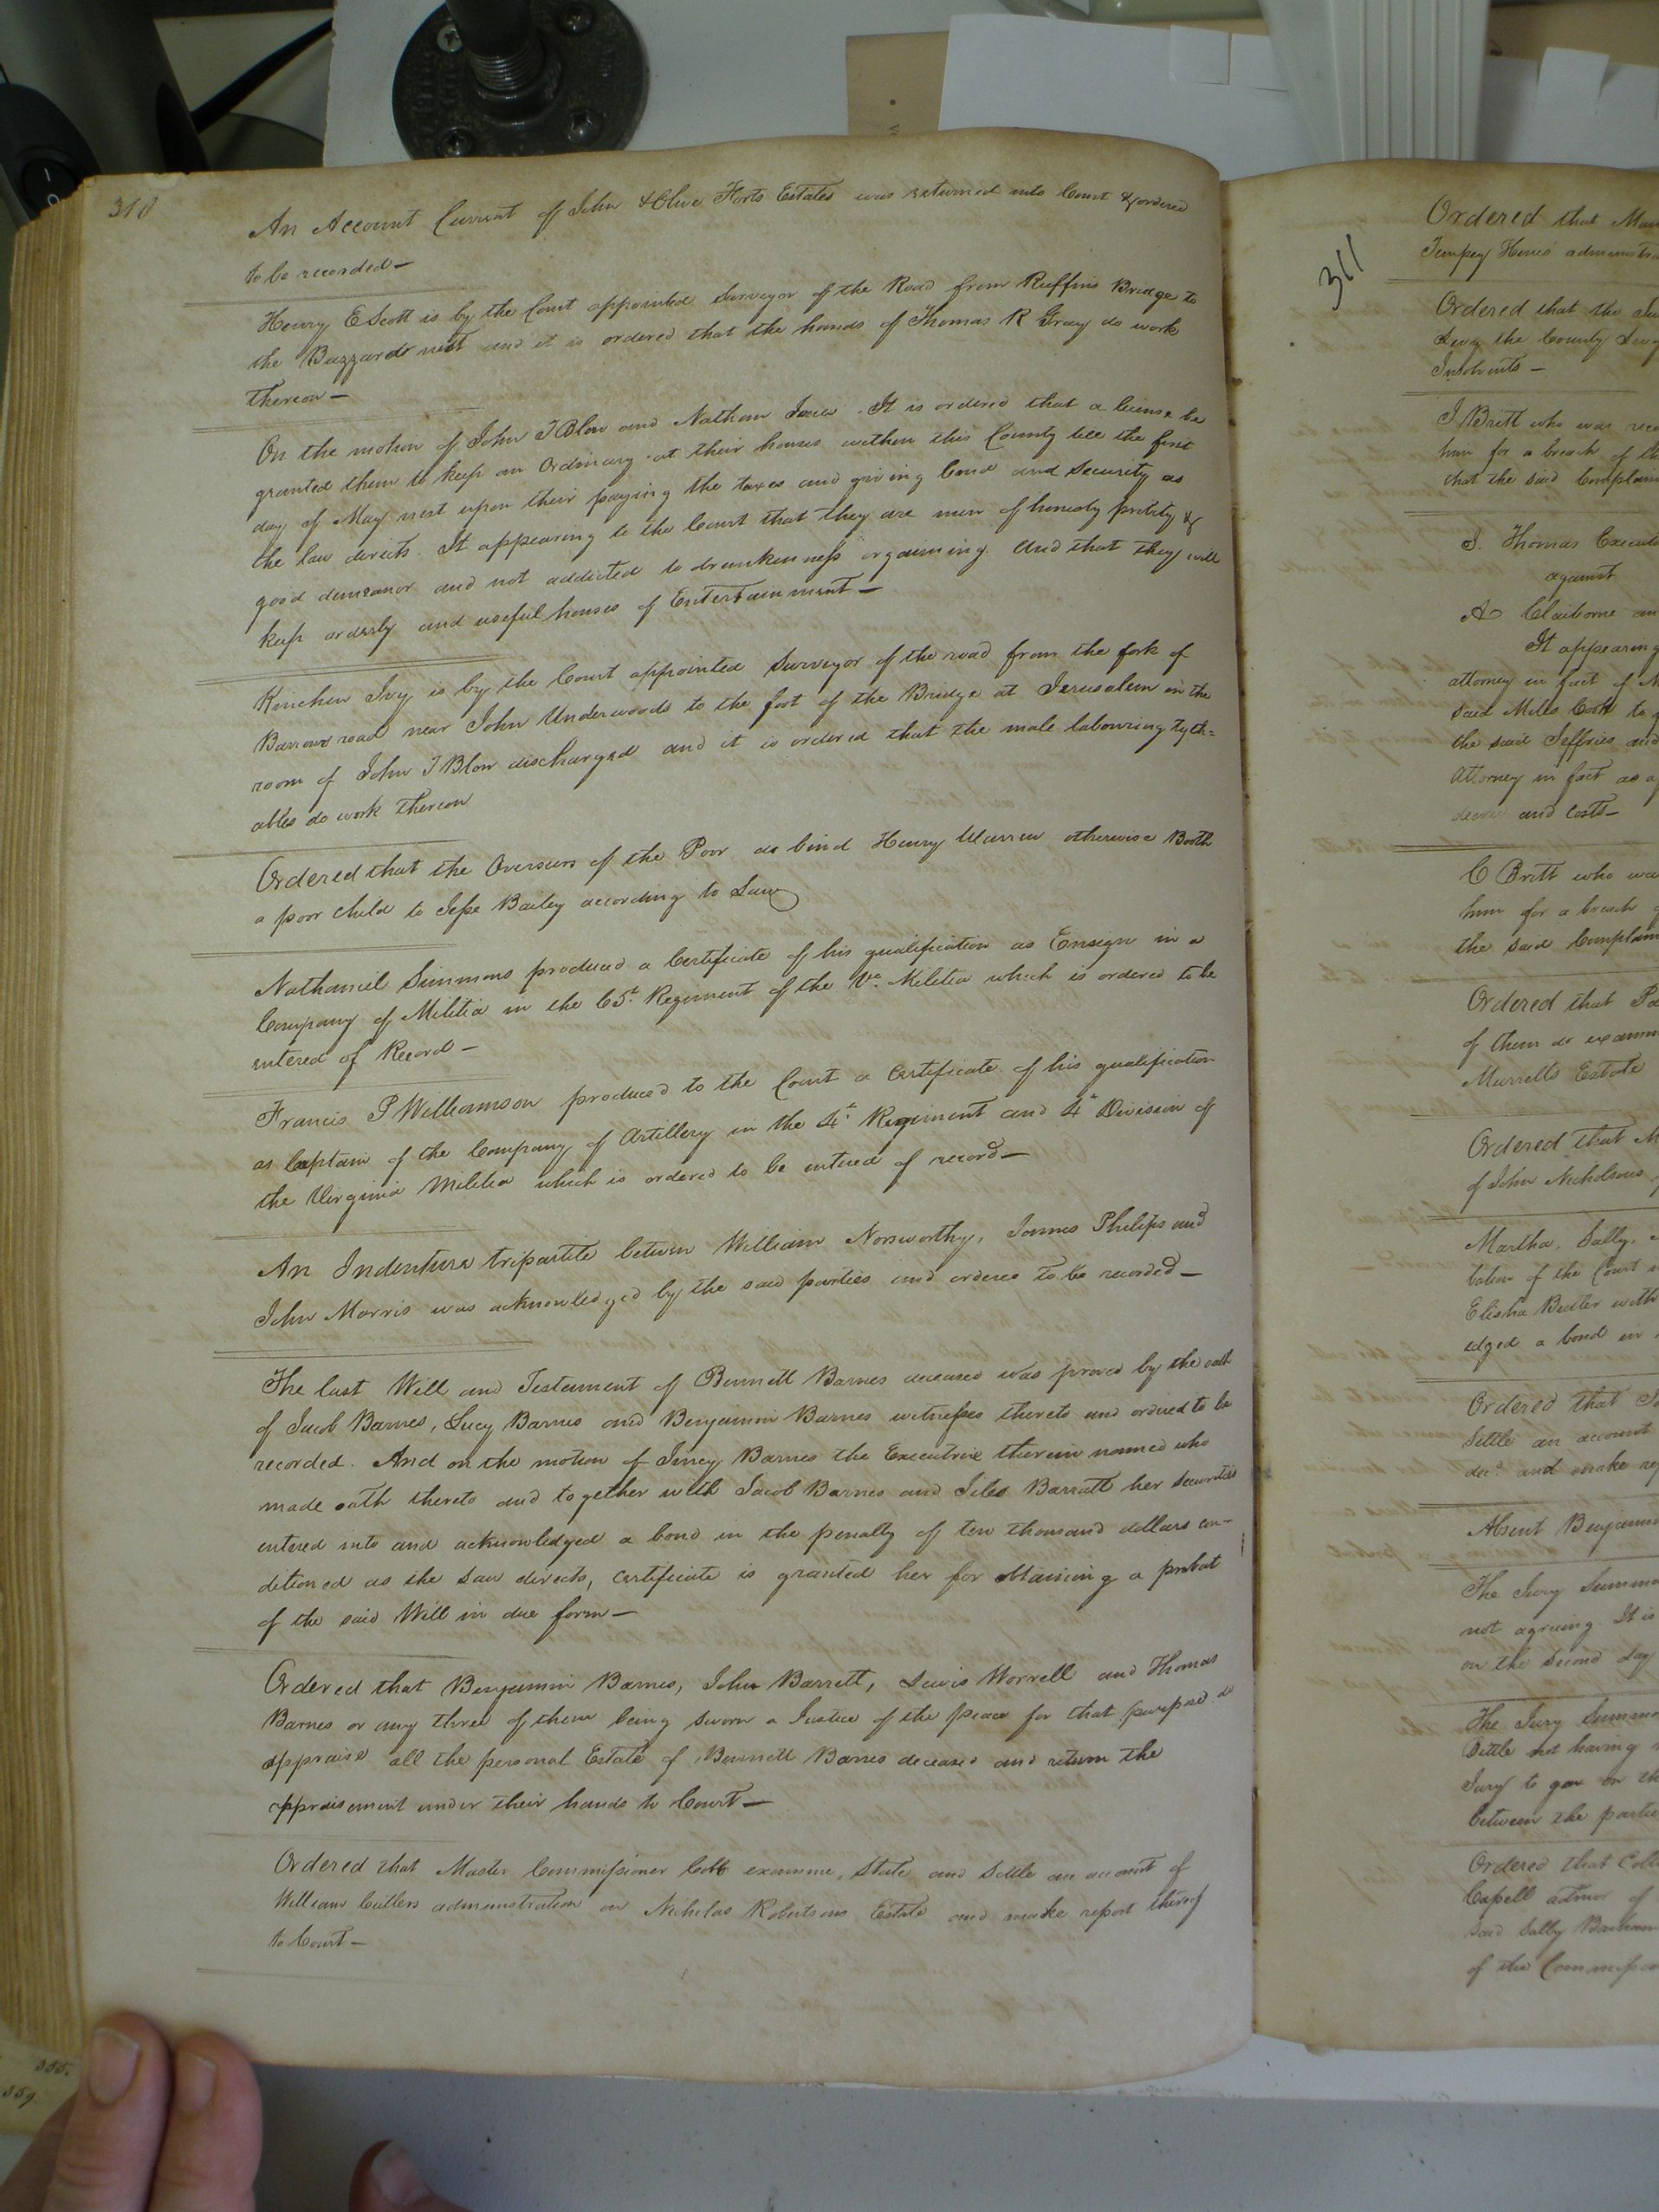 310
An Account Current of John & Olive Forts Estates was returned into Court & ordered
to be recorded —
Henry E Scott is by the Court appointed Surveyor of the Road from Ruffins Bridge to
the Buzzards nest and it is ordered that the hands of Thomas R Gray do work
thereon —
On the motion of John T Blow and Nathan Jones. It is ordered that a license be
granted them to keep an Ordinary at their houses within this County till the first
day of May next upon their paying the taxes and giving bond and security as
the law directs. It appearing to the Court that they are men of honesty probity &
good demeanor and not addicted to drunkenness or gaiming. And that they will
keep orderly and useful houses of Entertainment —
Kinchen Ivy is by the Court appointed Surveyor of the road from the fork of
Barrow road near John Underwoods to the foot of the Bridge at Jerusalem in the
room of John T Blow discharged and it is ordered that the male labouring tyth=
ables do work thereon
Ordered that the Overseers of the Poor do bind Henry Warren otherwise Booth
a poor child to Jesse Bailey according to Law
Nathaniel Simmons produced a Certificate of his qualification as Ensign in a
Company of Militia in the 65t. Regiment of the Va. Militia which is ordered to be
entered of Record —
Francis P Williamson produced to the Court a Certificate of his qualification
as Captain of the Company of Artillery in the 4t. Regiment and 4t Division of
the Virginia Militia which is ordered to be entered of record —
An Indenture tripartite between William Norsworthy, James Philips and
John Morris was acknowledged by the said parties and ordered to be recorded —
The last Will and Testament of Bennett Barnes deceased was proved by the oath
of Jacob Barnes, Lucy Barnes and Benjamin Barnes witnesses thereto and ordered to be
recorded. And on the motion of Barnes the Executrix therein named who
made oath thereto and together with Jacob Barnes and Giles Barratt her securities
entered into and acknowledged a bond in the penalty of ten thousand dollars con-
ditioned as the Law directs, Certificate is granted her for obtaining a probat
of the said Will in due form —
Ordered that Benjamin Barnes, John Barrett, Lewis Worrell and Thomas
Barnes or any three of them being sworn a Justice of the peace for that purpose do
appraise all the personal Estate of Bennett Barnes deceased and return the
appraisement under their hands to Court —
Ordered that Master Commissioner Cobb examine, State and Settle an account of
William Cutlers administration on Nicholas Robertsons Estate and make report thereof
to Court —
311
Ordered that
administra
Ordered that the
the County
Insolvents —
J Britt who was
him for a breach of
that the said Complain
J. Thomas
against
Claiborne an
It appearing
attorney in fact of
Said Mills Cook to
the said Jeffries and
Attorney in fact as
and Costs —
C Britt who wa
him for a breach
the said Complain
Ordered that
of them do examin
Murrells Estate
Ordered that
of John Nicholsons
Martha, Sally,
of the Court
Elisha Butler with
edged a bond in
Ordered that
Settle an account
decd. and make rep
Absent Benjamin
The Jury Summo
not agreeing. It is
on the second day
The Jury Summo
Settle not having
Jury to go on th
between the partie
Ordered that
Capell admor of
Said Sally
of the Commissio
355.
359